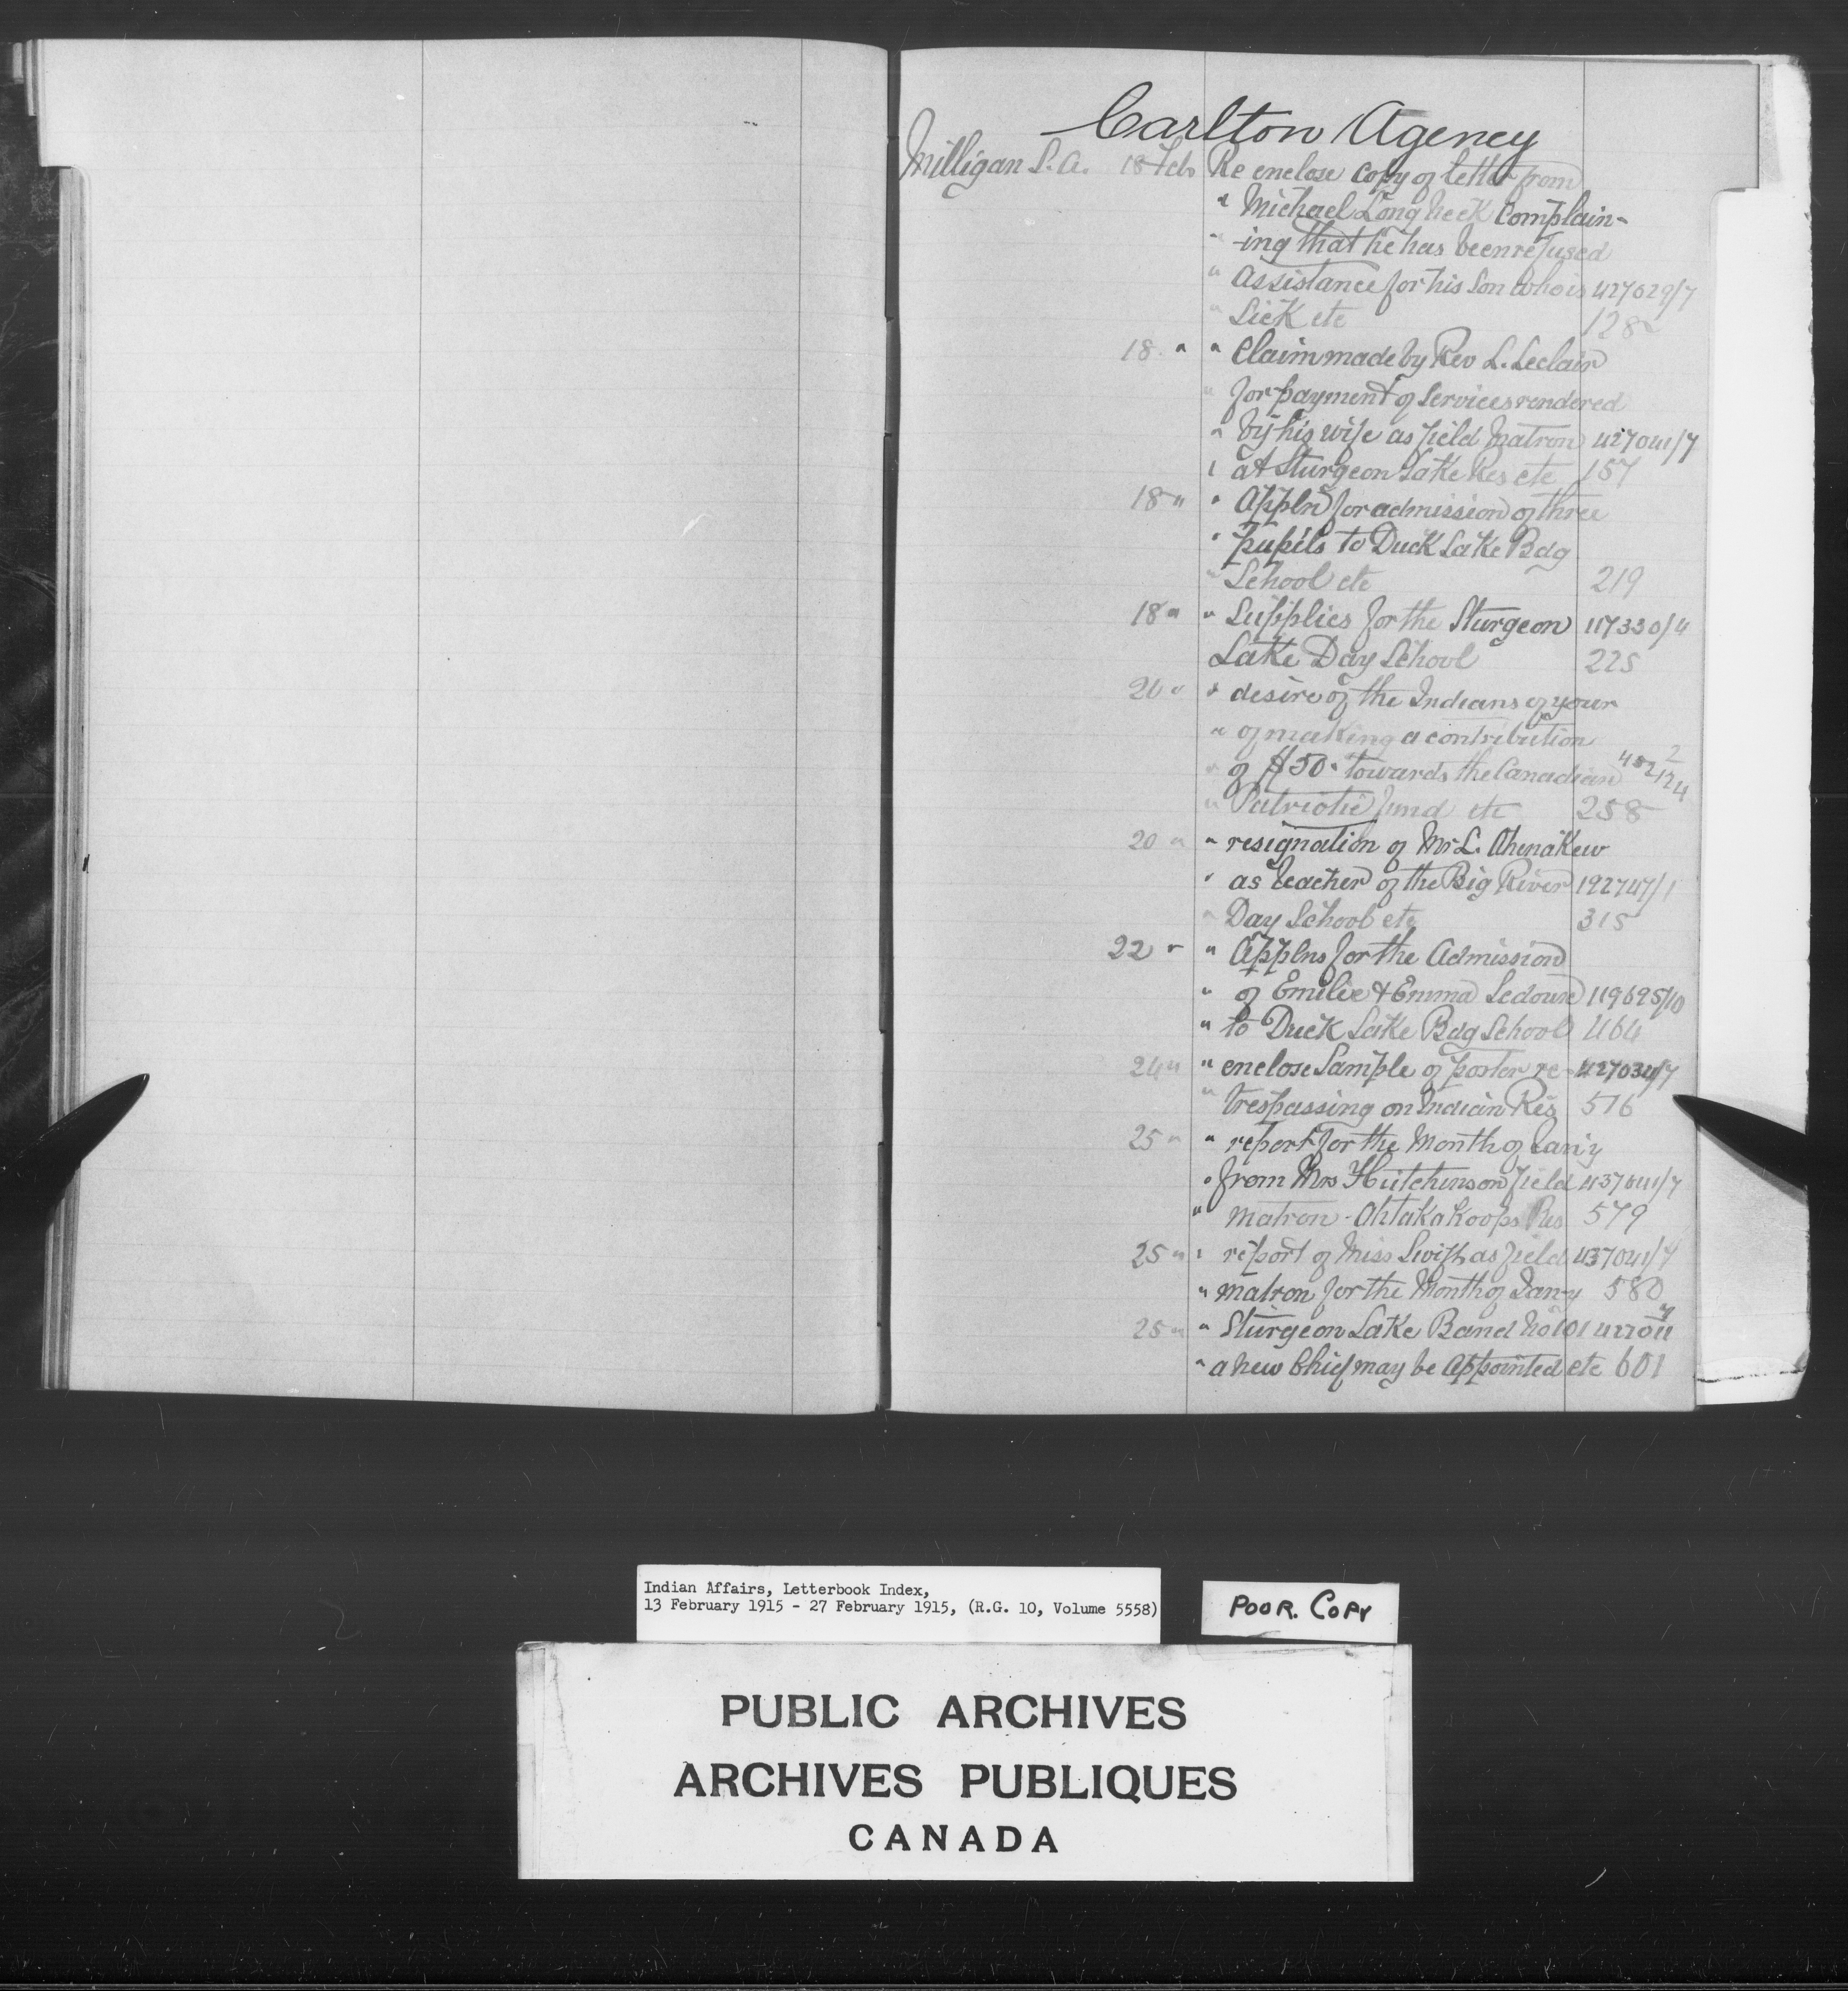 Carlton Agency
Milligan S.A. 18 Feb Re enclose copy of letter from
" Michael Longneck complain-
" -ing that he has been refused
" assistance for his son who is 427029/7
" Sick etc 128
18 " " Claim made by Rev L. Leclair
" for payment of services rendered
" by his wife as field matron 427041/7
" at Sturgeon Lake Res etc 157
18 " " Appln for admission of three
" pupils to Duck Lake Bdg
" School etc 219
18 " " Supplies for the Sturgeon 117330/4
Lake Day School 225
20 " " desire of the Indians of your
" of making a contribution
" of $50. towards the Canadian
" Patriotic fund etc 258
20 " " resignation of Mr L. Ahenakew
" as teacher of the Big River 192747/1
" Day School etc 315
22 " " Applns for the Admission
" of Emilie & Emma Ledoux 119695/10
" to Duck Lake Bdg School 464
24 " " enclose Sample of poster re- 427034/7
" trespassing on Indian Res 516
25 " " report for the Month of Jan'y
" from Mrs Hutchinson field 437041/7
" matron - Ahtakakoops Res 579
25 " " report of Miss Swift as field 437041/7
" matron for the Month of Jan-y 580
25 " " Sturgeon Lake Band No 101
" a new Chief may be appointed etc 601
Indian Affairs, Letterbook Index,
13 February 1915 - 27 February 1915, (R.G. 10, Volume 5558)
POOR. COPY
PUBLIC ARCHIVES
ARCHIVES PUBLIQUES
CANADA